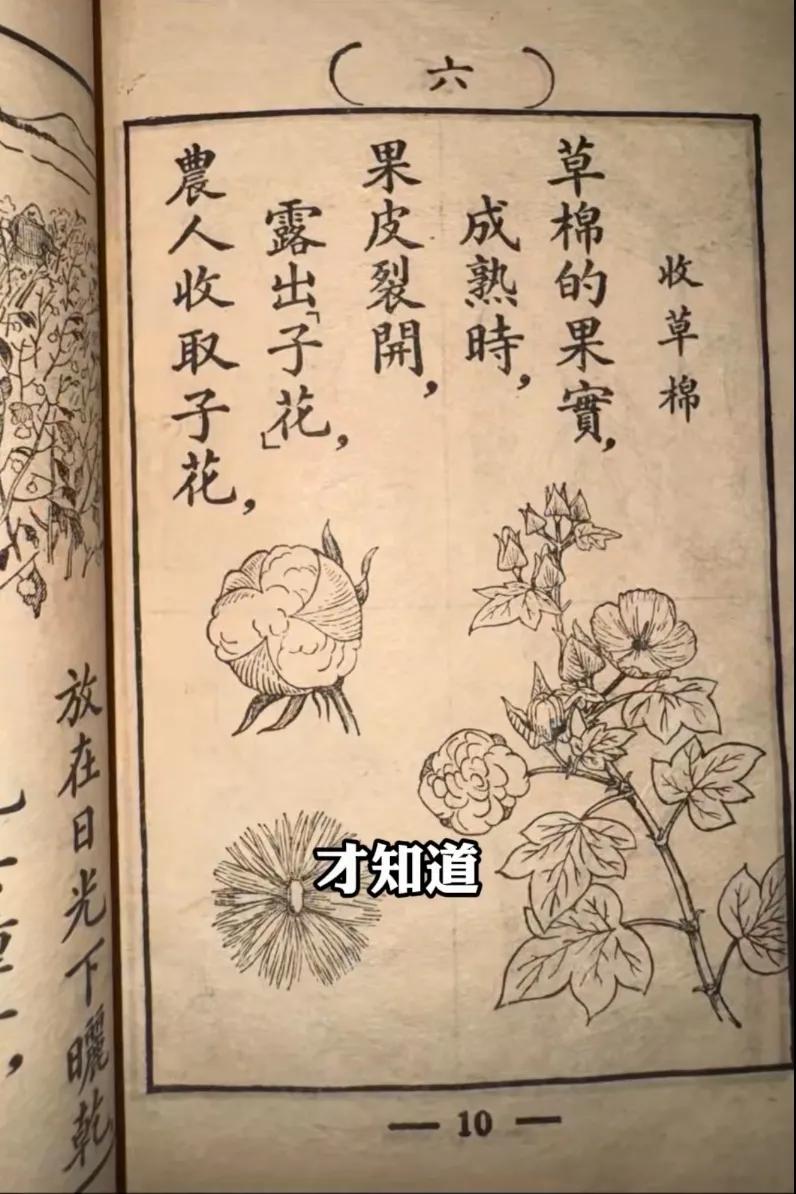 (六)
收草棉
草棉的果實,
成熟時,
果皮裂開,
露出「子花」,
農人收取子花,
放在日光下曬乾
才知道
— 10 —